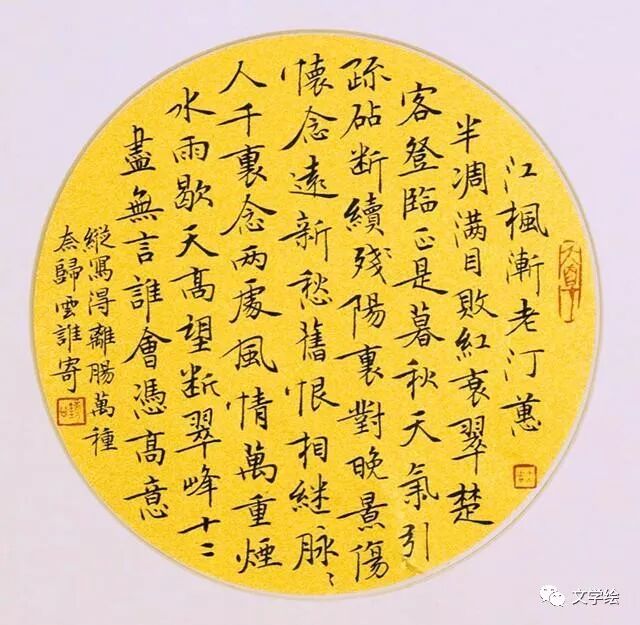 江楓漸老汀蕙
半凋满目敗紅衰翠楚
客登臨正是暮秋天氣引
疏砧断續残陽裏對晚景傷
懷念遠新愁舊恨相継脉〻
人千裏念两處風情萬重煙
水雨歇天高望断翠峰十二
盡無言誰會憑高意
縱寫得離腸萬種
奈歸雲誰寄
文学绘